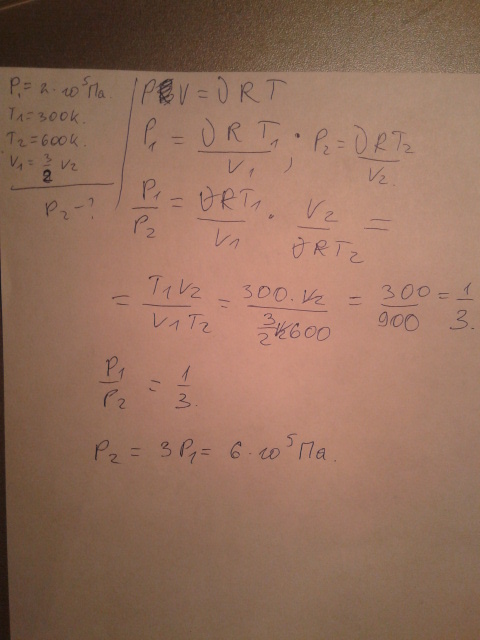 P₁ = 2·10⁵ Па.
T₁ = 300 К.
T₂ = 600 К.
V₁ = 3/2 V₂
P₂ - ?
P V = ν R T
P₁ = νRT₁/V₁ ; P₂ = νRT₂/V₂.
P₁/P₂ = νRT₁/V₁ · V₂/νRT₂ =
= T₁V₂/V₁T₂ = 300·V₂/(3/2 V₂ 600) = 300/900 = 1/3.
P₁/P₂ = 1/3.
P₂ = 3P₁ = 6·10⁵ Па.